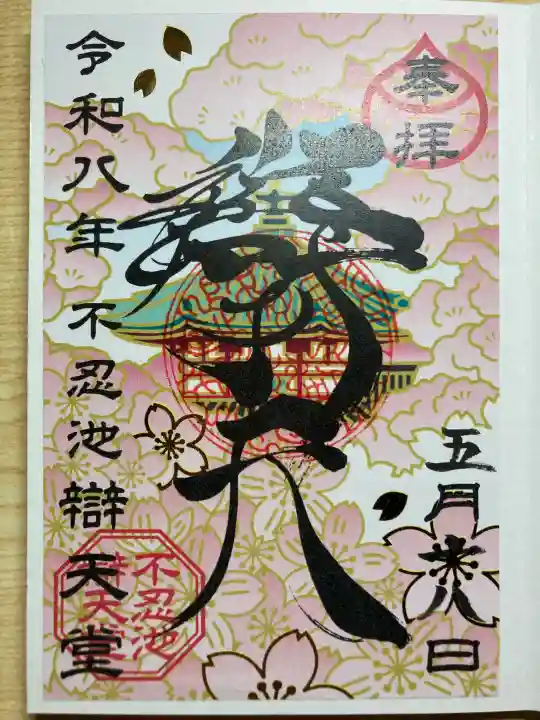 奉拝
五月十八日
令和八年 不忍池辯天堂
不忍池
辯天堂